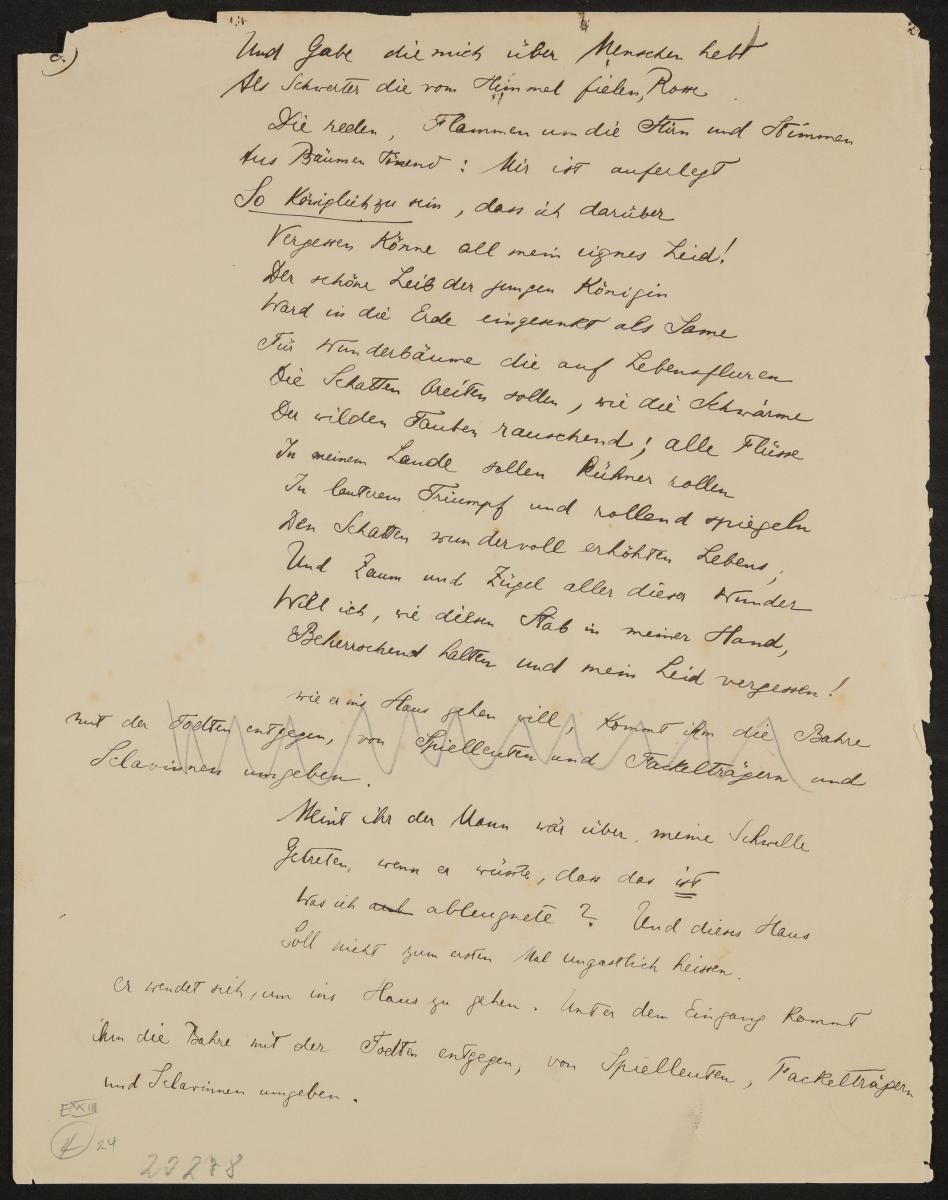 c.)
Und Gabe die mich über Menschen hebt
Als Schwerter die vom Himmel fielen, Rosse
Die reden, Flammen um die Stirn und Stimmen
Aus Bäumen tönend: Mir ist auferlegt
So Königlich zu sein, dass ich darüber
Vergessen Könne all mein eignes Leid!
Der schöne Leib der jungen Königin
Ward in die Erde eingesenkt als Same
Für Wunderbäume die auf Lebensfluren
Die Schatten breiten sollen, wie die Schwärme
Der wilden Tauben rauschend; alle Flüsse
In meinem Lande sollen Kühner rollen
In lauterem Triumpf und rollend spiegeln
Den Schatten wundervoll erhöhten Lebens;
Und Zaum und Zügel aller dieser Wunder
Will ich, wie diesen Stab in meiner Hand,
Beherrschend halten und mein Leid vergessen!
wie er ins Haus gehen will, Kommt ihm die Bahre
mit der Todten entgegen, von Spielleuten und Fackelträgern und
Sclavinnen umgeben.
Meint ihr der Mann wär über meine Schwelle
Getreten, wenn er wüsste, dass das ist
Was ich ableugnete? Und dieses Haus
Soll nicht zum ersten Mal ungastlich heissen.
Er wendet sich, um ins Haus zu gehen. Unter dem Eingang Kommt
ihm die Bahre mit der Todten entgegen, von Spielleuten, Fackelträgern
und Sclavinnen umgeben.
E XXIII
24